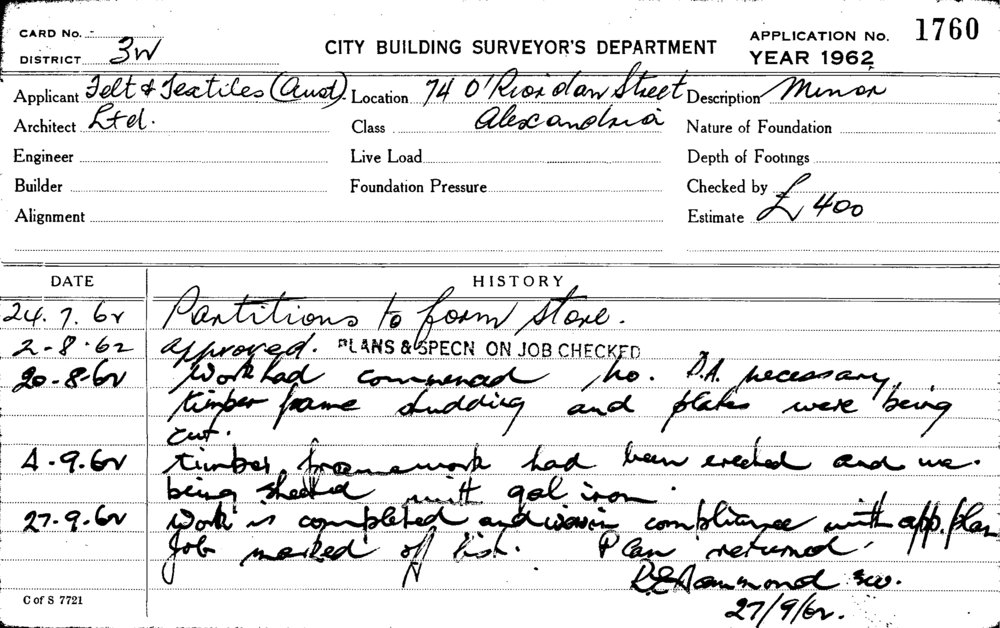 CARD No. -
DISTRICT 3W
CITY BUILDING SURVEYOR'S DEPARTMENT
APPLICATION No. 1760
YEAR 1962
Applicant Felt & Textiles (Aust). Location 74 O'Riordan Street Description Minor
Architect Ltd. Class Alexandria Nature of Foundation
Engineer Live Load Depth of Footings
Builder Foundation Pressure Checked by
Alignment Estimate £400
DATE HISTORY
24.7.62 Partitions to form store.
2-8-62 approved. PLANS & SPECN ON JOB CHECKED
20-8-62 Work had commenced No. D.A. necessary,
timber frame studding and plates were being
cut.
4-9-62 timber framework had been erected and
being sheeted with gal iron.
27-9-62 Work is completed and is in compliance with app. plan
Job marked off list. Plan returned.
R.E. Hammond
27/9/62.
C of S 7721